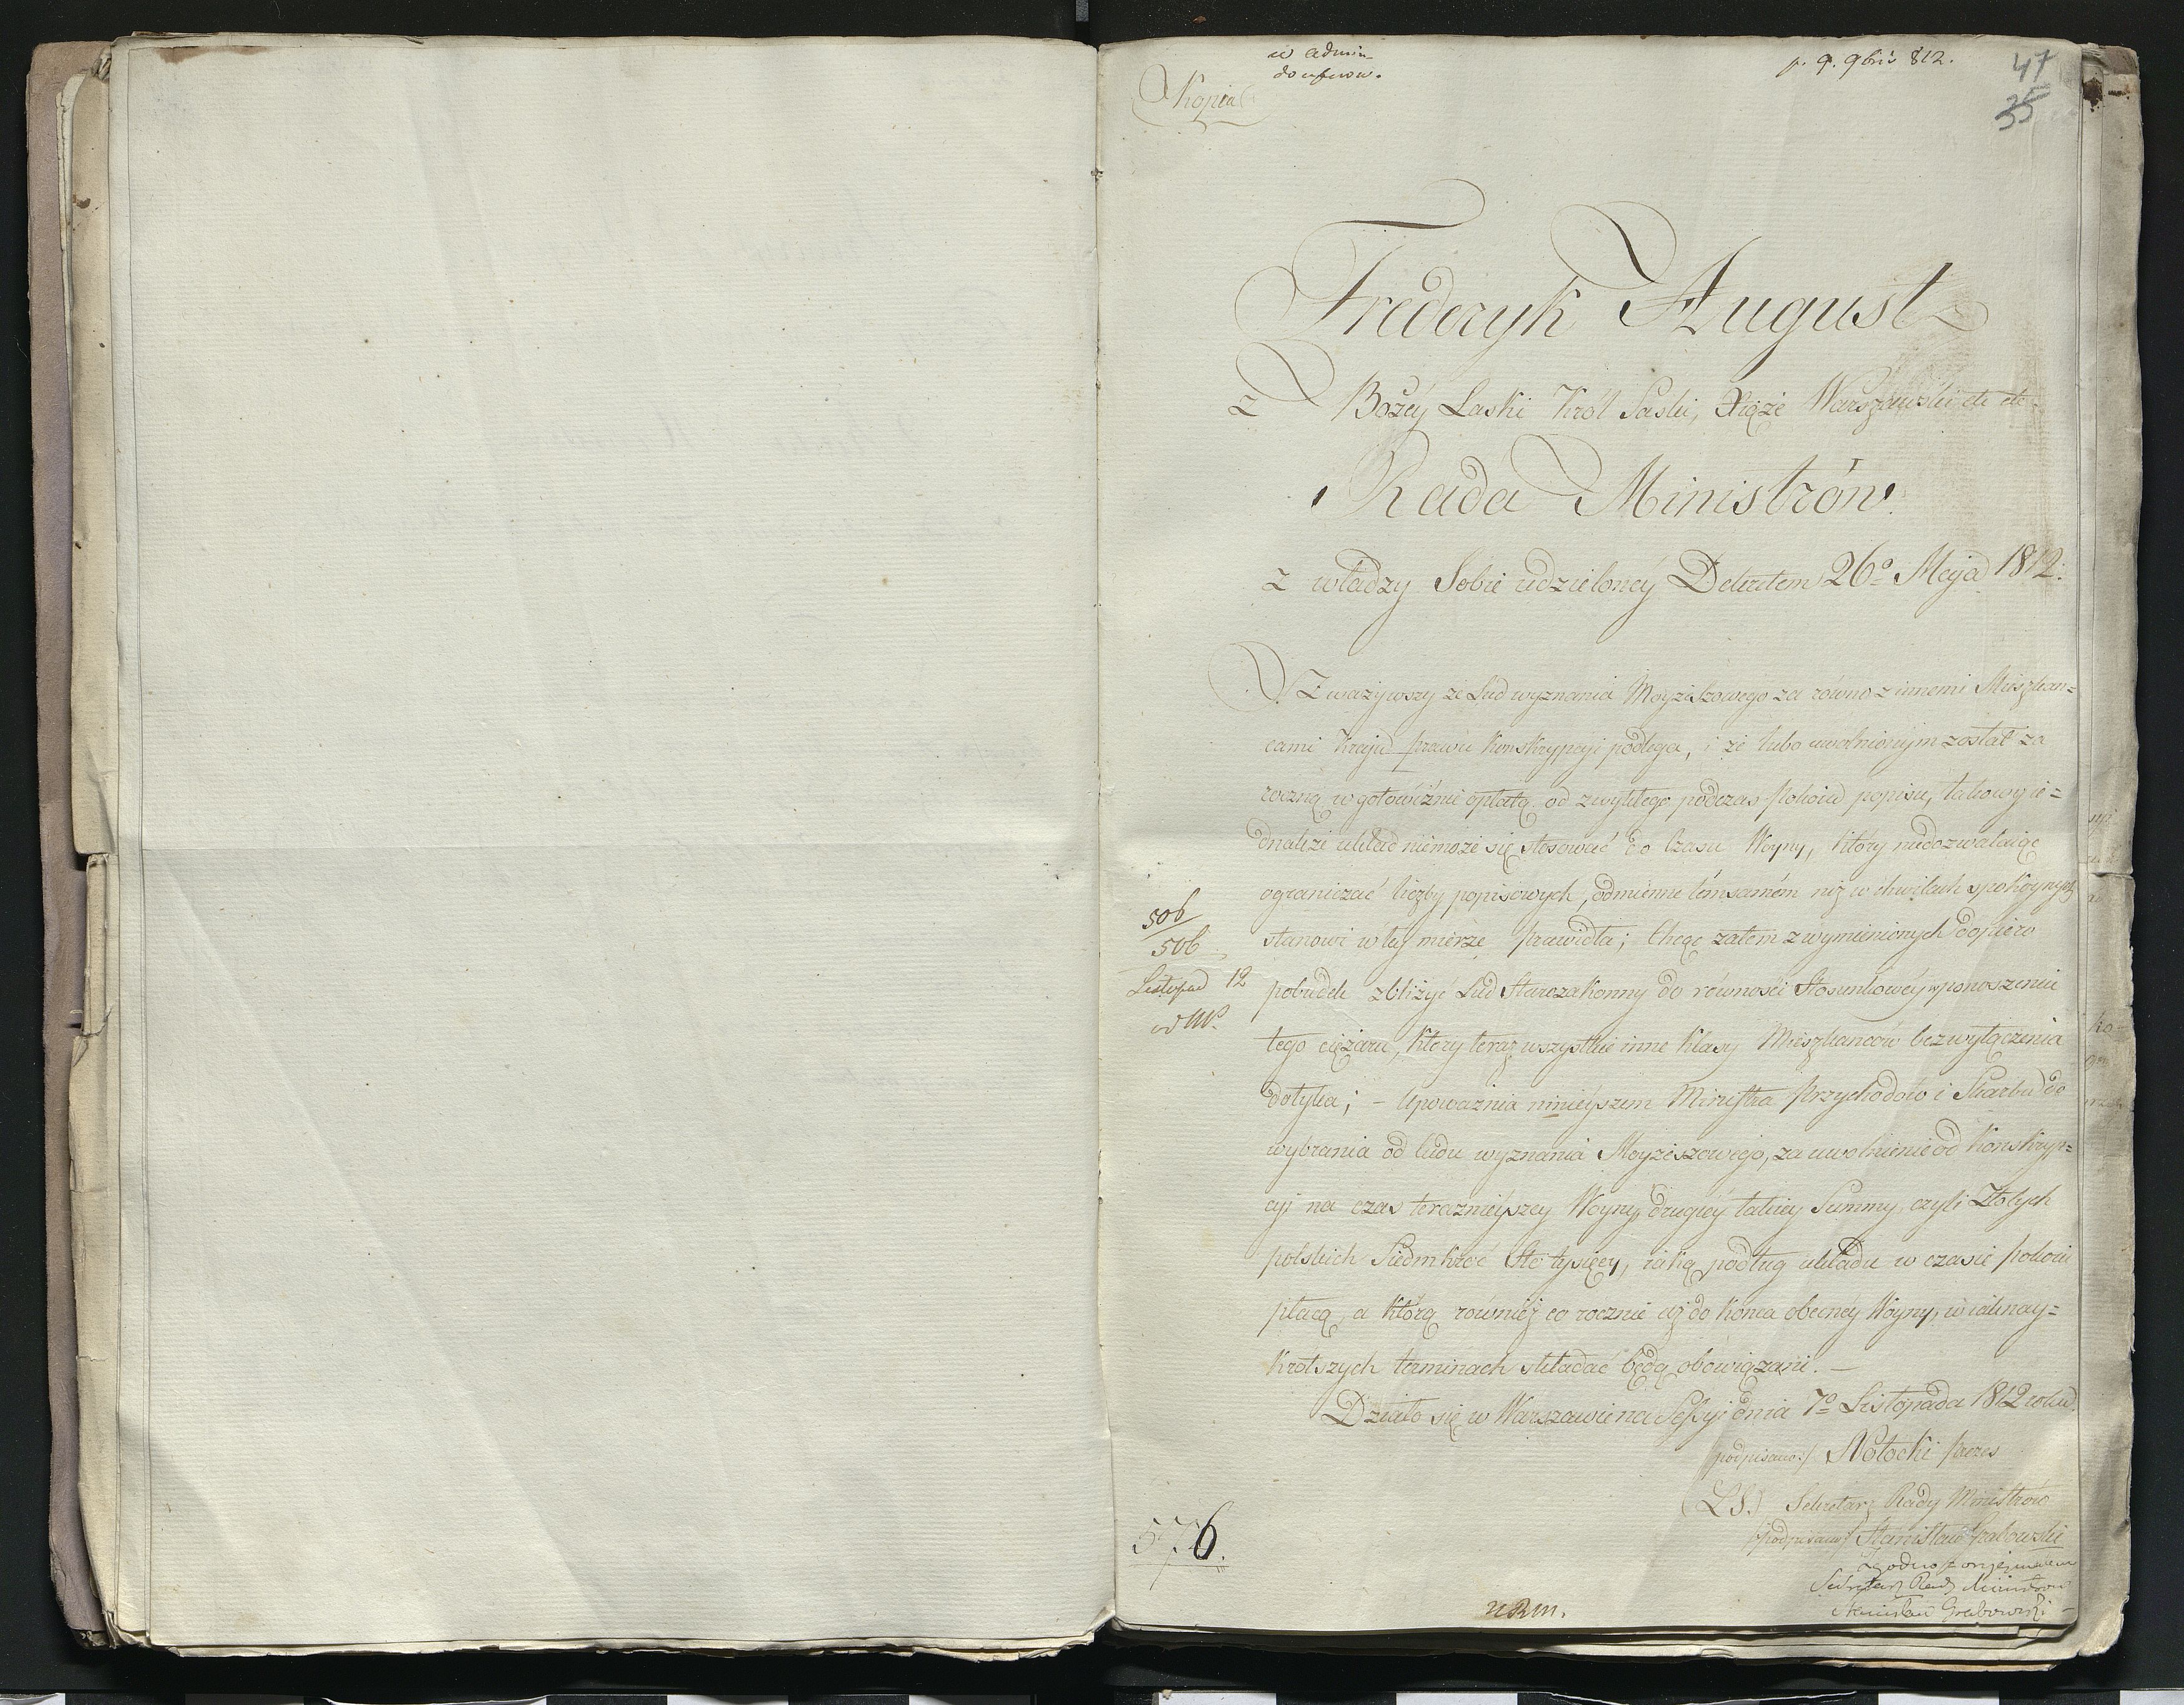 w admin
Kopia
p. 9. 9bris 812.
47
35
Frederyk August
z Bożey Łaski Król Saski, Xiąże Warszawski etc etc.
Rada Ministrów
z władzy Sobie udzieloney Dekretem 26o Maja 1812.
Zważywszy że Lud wyznania Moyżeszowego za równo z innemi Mieszkan=
cami Kraju prawu Konskrypcyi podlega, i że lubo uwolnionym został za
roczną w gotowiźnie opłatą od zwykłego podczas Pokoiu popisu, takowy ie=
dnakże układ niemoże się stosować do Czasu Woyny, który niedozwalaiąc
ograniczać liczby popisowych, odmienne témsamém niż w chwilach spokoynych
stanowi w tey mierze prawidła; Chcąc zatem z wymienionych dopiero
pobudek zbliżyć Lud Starozakonny do równości Stosunkowéy w ponoszeniu
tego ciężaru, który teraz wszystkie inne Klasy Mieszkanców bez wyłączenia
dotyka; – Upoważnia ninieyszem Ministra Przychodów i Skarbu do
wybrania od ludu wyznania Moyżeszowego, za uwolnienie od Konskryp=
cyi na czas teraznieyszey Woyny drugiéy takiey Summy, czyli Złotych
polskich Siedmkroć Sto tysięcy, iaką podług układu w czasie pokoiu
płacą, a którą również co rocznie aż do Konca obecnéy Woyny, w iaknay=
krotszych terminach składać będą obowiązani. –
Działo się w Warszawie na Sessyi dnia 7o Listopada 1812 roku.
podpisano:/ S Potocki Prezes
(LS.) Sekretarz Rady Ministrów
/podpisano/ Stanisław Grabowski
Zgodno z oryginałem
Sekretarz Rady Ministrow
Stanisław Grabowski
506
506
Listopad 12
576.